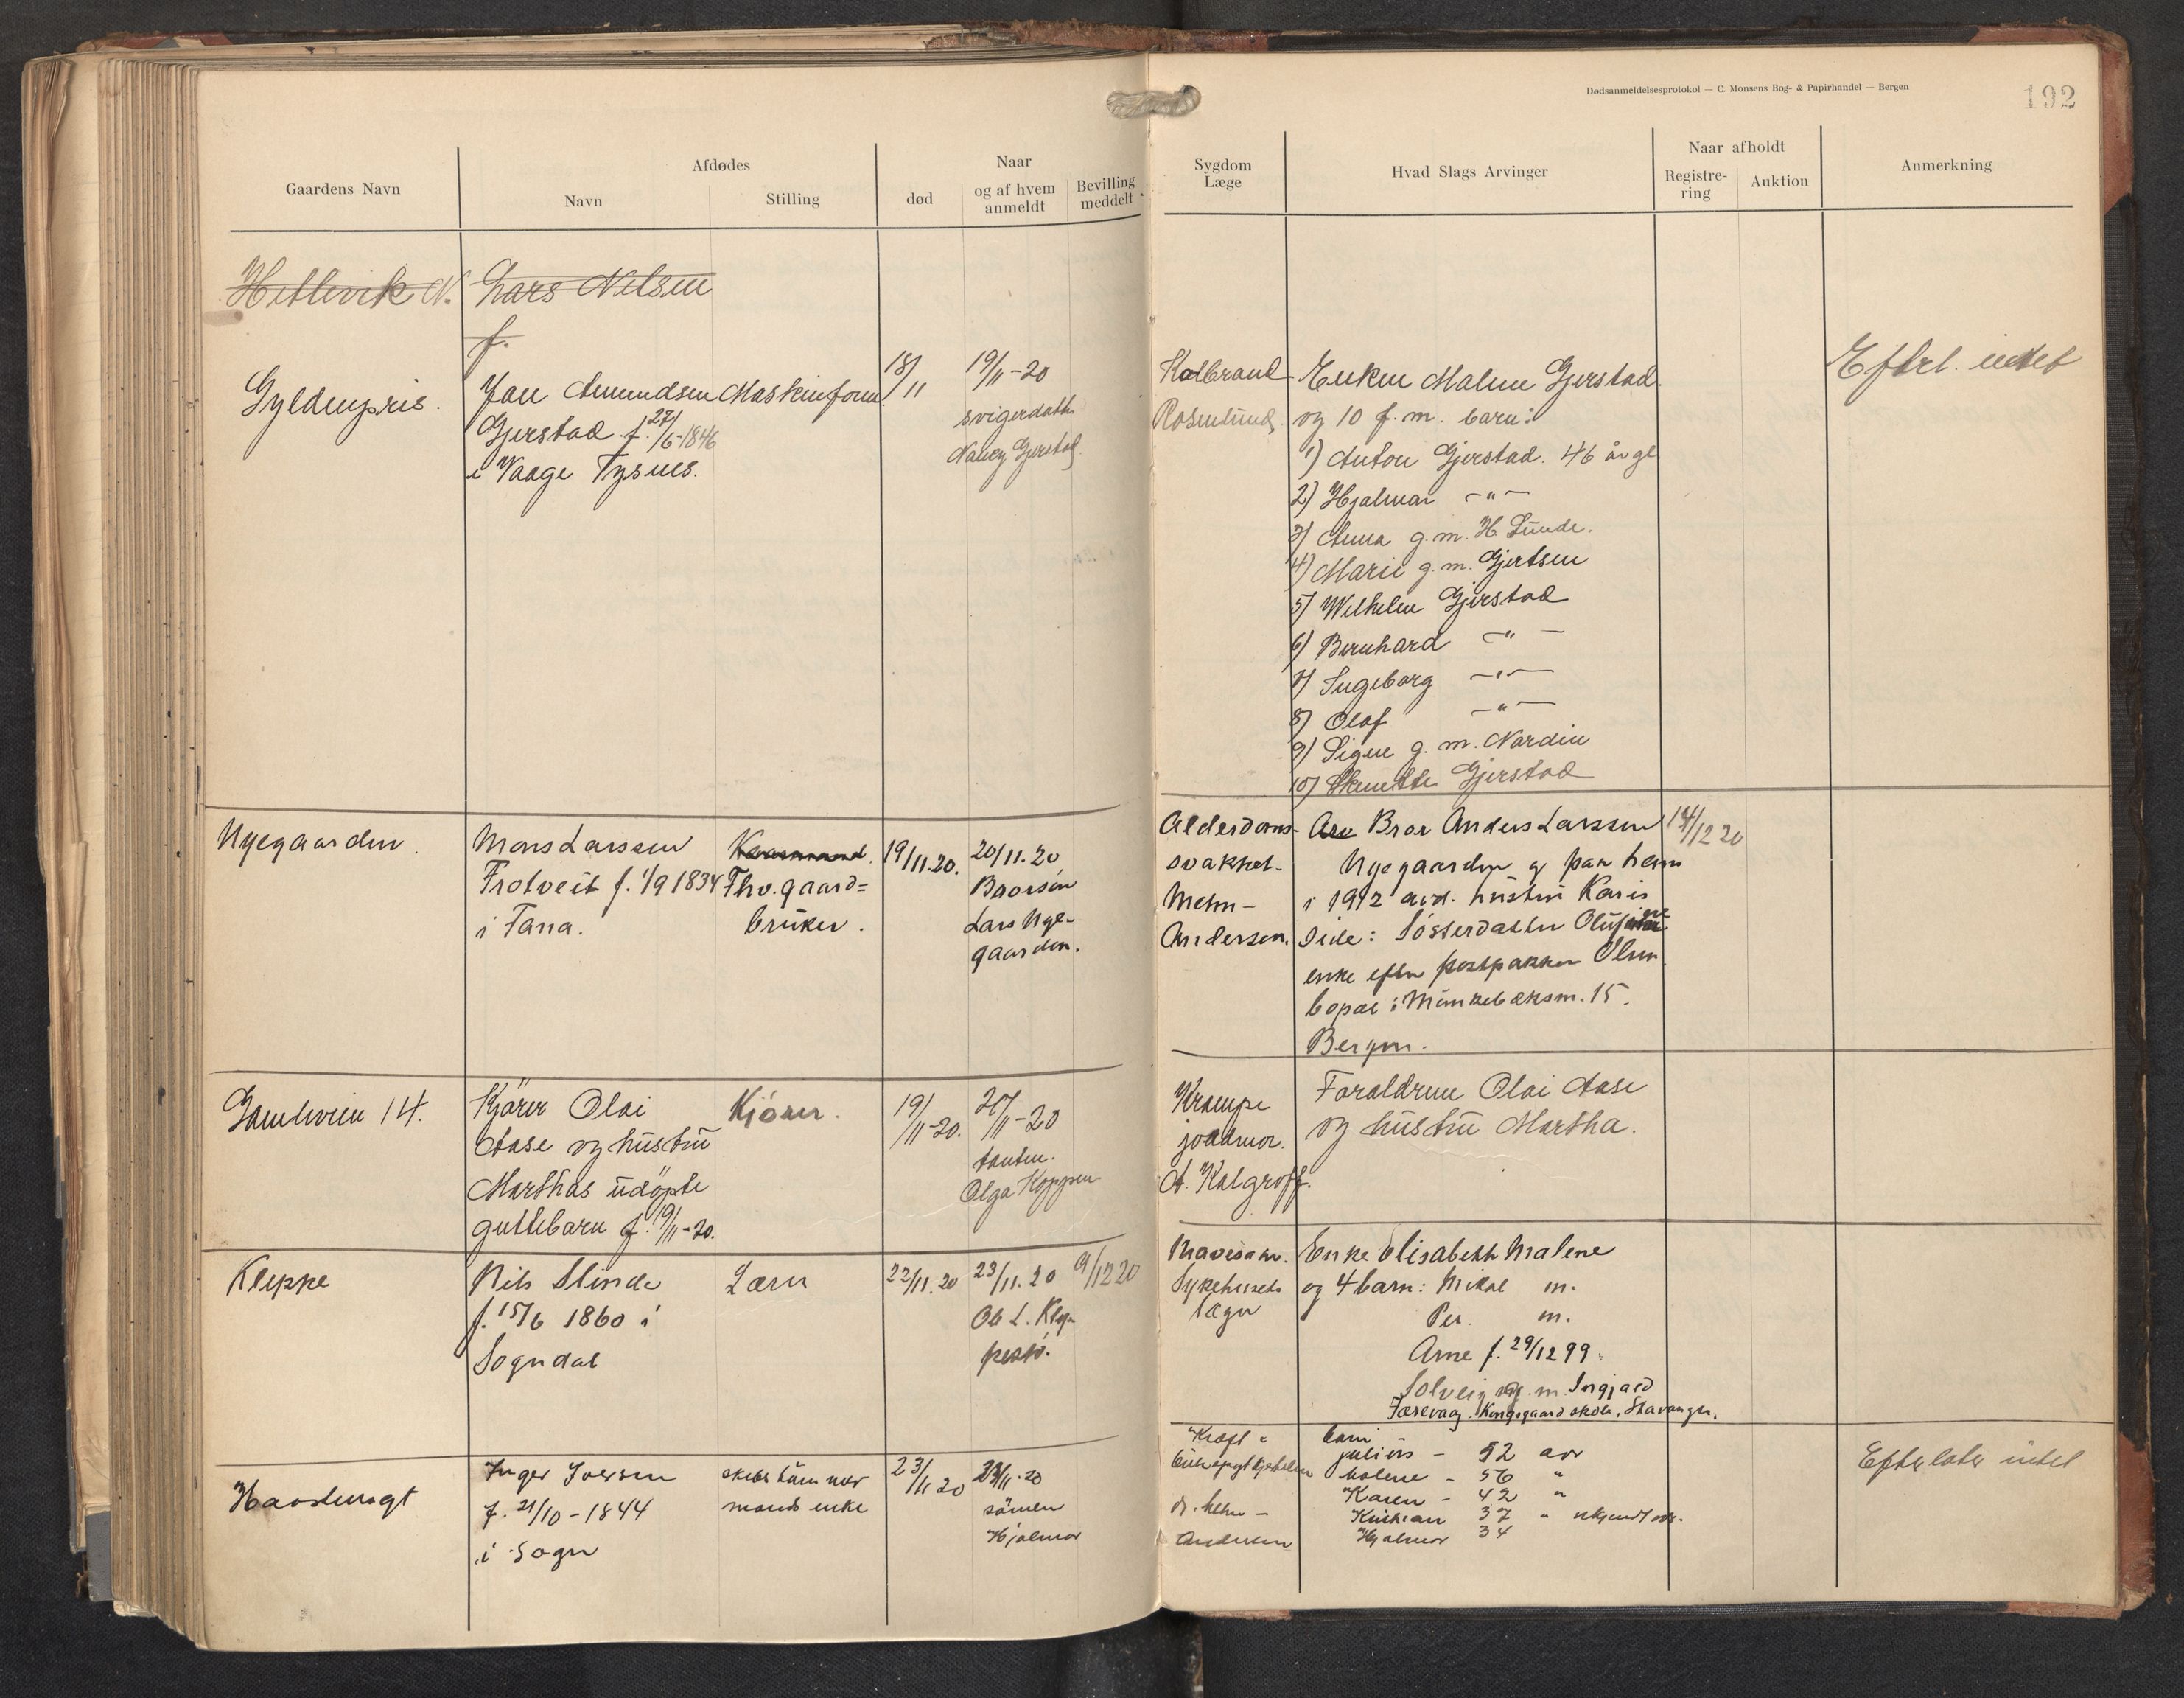 Dødsanmeldelsesprotokol — C. Monsens Bog- & Papirhandel — Bergen
192
Gaardens Navn
Afdødes
Navn
Stilling
død
Naar
og af hvem
anmeldt
Bevilling
meddelt
Sygdom
Læge
Hvad Slags Arvinger
Naar afholdt
Registre-
ring
Auktion
Anmerkning
Hetlevik N.
Lars Nilsen
f.
Gyldenpris.
Jan Amundsen
Gjerstad f. 27/6-1846
i Vaage Tysnes.
Maskinform.
18/11
19/11-20
svigerdatter
Nancy Gjerstad
Koldbrand
Rosenlund
Enken Malene Gjerstad
og 10 f.m. barn:
1) Anton Gjerstad. 46 år gl
2) Hjalmar -"-
3) Anna g.m. H Lunde.
4) Marie g.m. Gjertsen
5) Wilhelm Gjerstad
6) Bernhard -"-
7) Ingeborg -"-
8) Olaf -"-
9) Signe g.m. Nordin
10) Gjerstad
Efterl. intet
Nyegaarden.
Mons Larssen
Trotveit f. 1/9 1834
i Fana.
Fhv. gaard=
bruker.
19/11.20.
20/11.20
Brorsøn
Lars Nye-
gaarden.
Alderdoms-
svakhet-
Mohn-
Andersen.
Arv Bror Anders Larssen
Nyegaarden og paa hans
i 1912 avd. hustru Karis
side: Søsterdatter Olufine
enke efter postpakker Olsen
bopæl: Munkebæksm. 15.
Bergen.
14/12 20
Gamleveien 14.
Kjører Olai
Aase og hustru
Marthas udøpte
guttebarn f. 19/11-20.
Kjører.
19/11-20.
20/11-20
tanten.
Olga Koppen
Krampe
jordmor.
A. Kalgraff.
Forældrene Olai Aase
og hustru Martha.
Kleppe
Nils Slinde
f. 15/6 1860 i
Sogndal
Lærer
22/11.20
23/11.20
Ole L. Klep-
pestø.
9/12 20
Mavesaar.
Sykehusets
læger
Enke Elisabeth Malene
og 4 barn: Mikal m.
Per. m.
Arne f. 29/12 99.
Solveig g.m. Ingjald
Færevaag. Kongsgaard skole, Stavanger.
Haastenagt
Inger Iversen
f. 21/10-1844
i Sogn
skibstømmer
mands enke
23/11 20
23/11-20
sönen
Hjalmar
Kræft i
dr. Mohn-
Andersen
barn
Julius - 52 aar
Malene - 56 "
Karen - 42 "
Kristian 37 "
Hjalmar 34
Efterlater intet